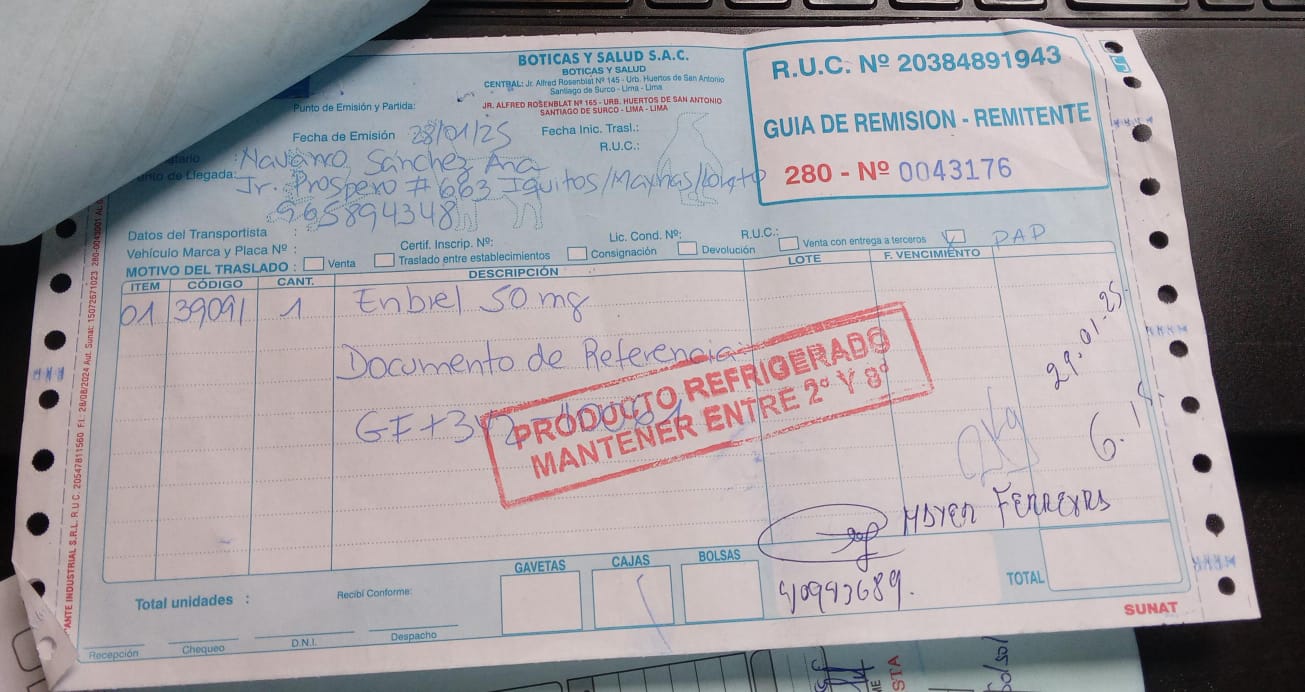 BOTICAS Y SALUD S.A.C.
BOTICAS Y SALUD
CENTRAL: Jr. Alfred Rosenblat Nº 145 - Urb. Huertos de San Antonio
Santiago de Surco - Lima - Lima
JR. ALFRED ROSENBLAT Nº 165 - URB. HUERTOS DE SAN ANTONIO
SANTIAGO DE SURCO - LIMA - LIMA
R.U.C. Nº 20384891943
GUIA DE REMISION - REMITENTE
280 - Nº 0043176
Punto de Emisión y Partida:
Fecha de Emisión 28/01/25 Fecha Inic. Trasl.:
R.U.C.:
Navarro Sánchez Ana
de Llegada: Jr. Prospero # 663 Iquitos/Maynas/Loreto
965894348
Datos del Transportista :
Vehículo Marca y Placa Nº : Certif. Inscrip. Nº: Lic. Cond. Nº: R.U.C.:
MOTIVO DEL TRASLADO : Venta Traslado entre establecimientos Consignación Devolución Venta con entrega a terceros PAP
ITEM CÓDIGO CANT. DESCRIPCIÓN LOTE F. VENCIMIENTO
01 39091 1 Enbrel 50 mg
Documento de Referencia
PRODUCTO REFRIGERADO
MANTENER ENTRE 2º Y 8º
29.01.25
FERREYRA
40993689.
GAVETAS CAJAS BOLSAS
TOTAL
Total unidades :
Recibí Conforme:
Recepción Chequeo D.N.I. Despacho
SUNAT
ANTE INDUSTRIAL S.R.L. R.U.C. 20547811560 F.I. 28/08/2024 Aut. Sunat: 15072671023